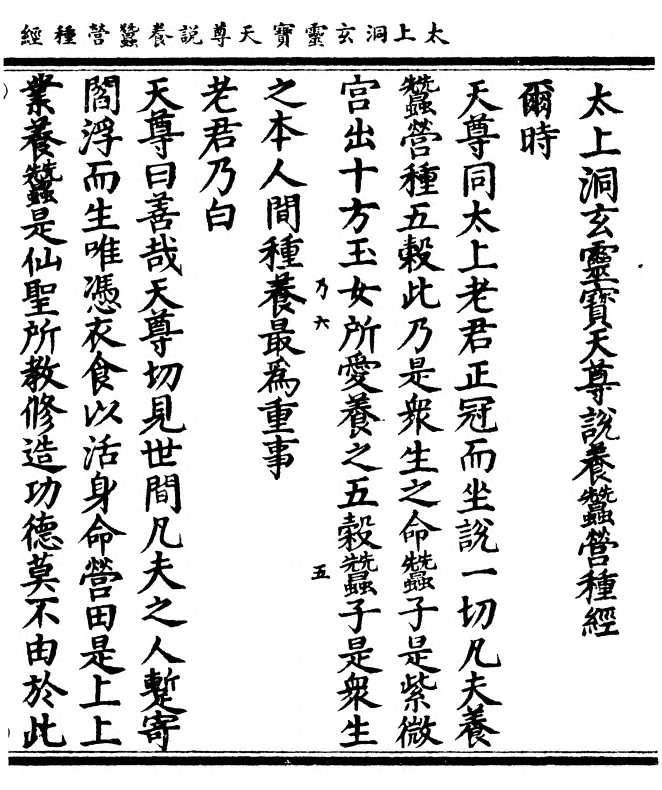 太上洞玄靈寶天尊說養蠶營種經
太上洞玄靈寶天尊說養蠶營種經
爾時
天尊同太上老君正冠而坐說一切凡夫養
蠶營種五穀此乃是衆生之命蠶子是紫微
宫出十方玉女所愛養之五穀蠶子是衆生
乃六
五
之本人間種養最爲重事
老君乃白
天尊曰善哉天尊切見世間凡夫之人蹔寄
閻浮而生唯憑衣食以活身命營田是上上
業養蠶是仙聖所教修造功德莫不由於此